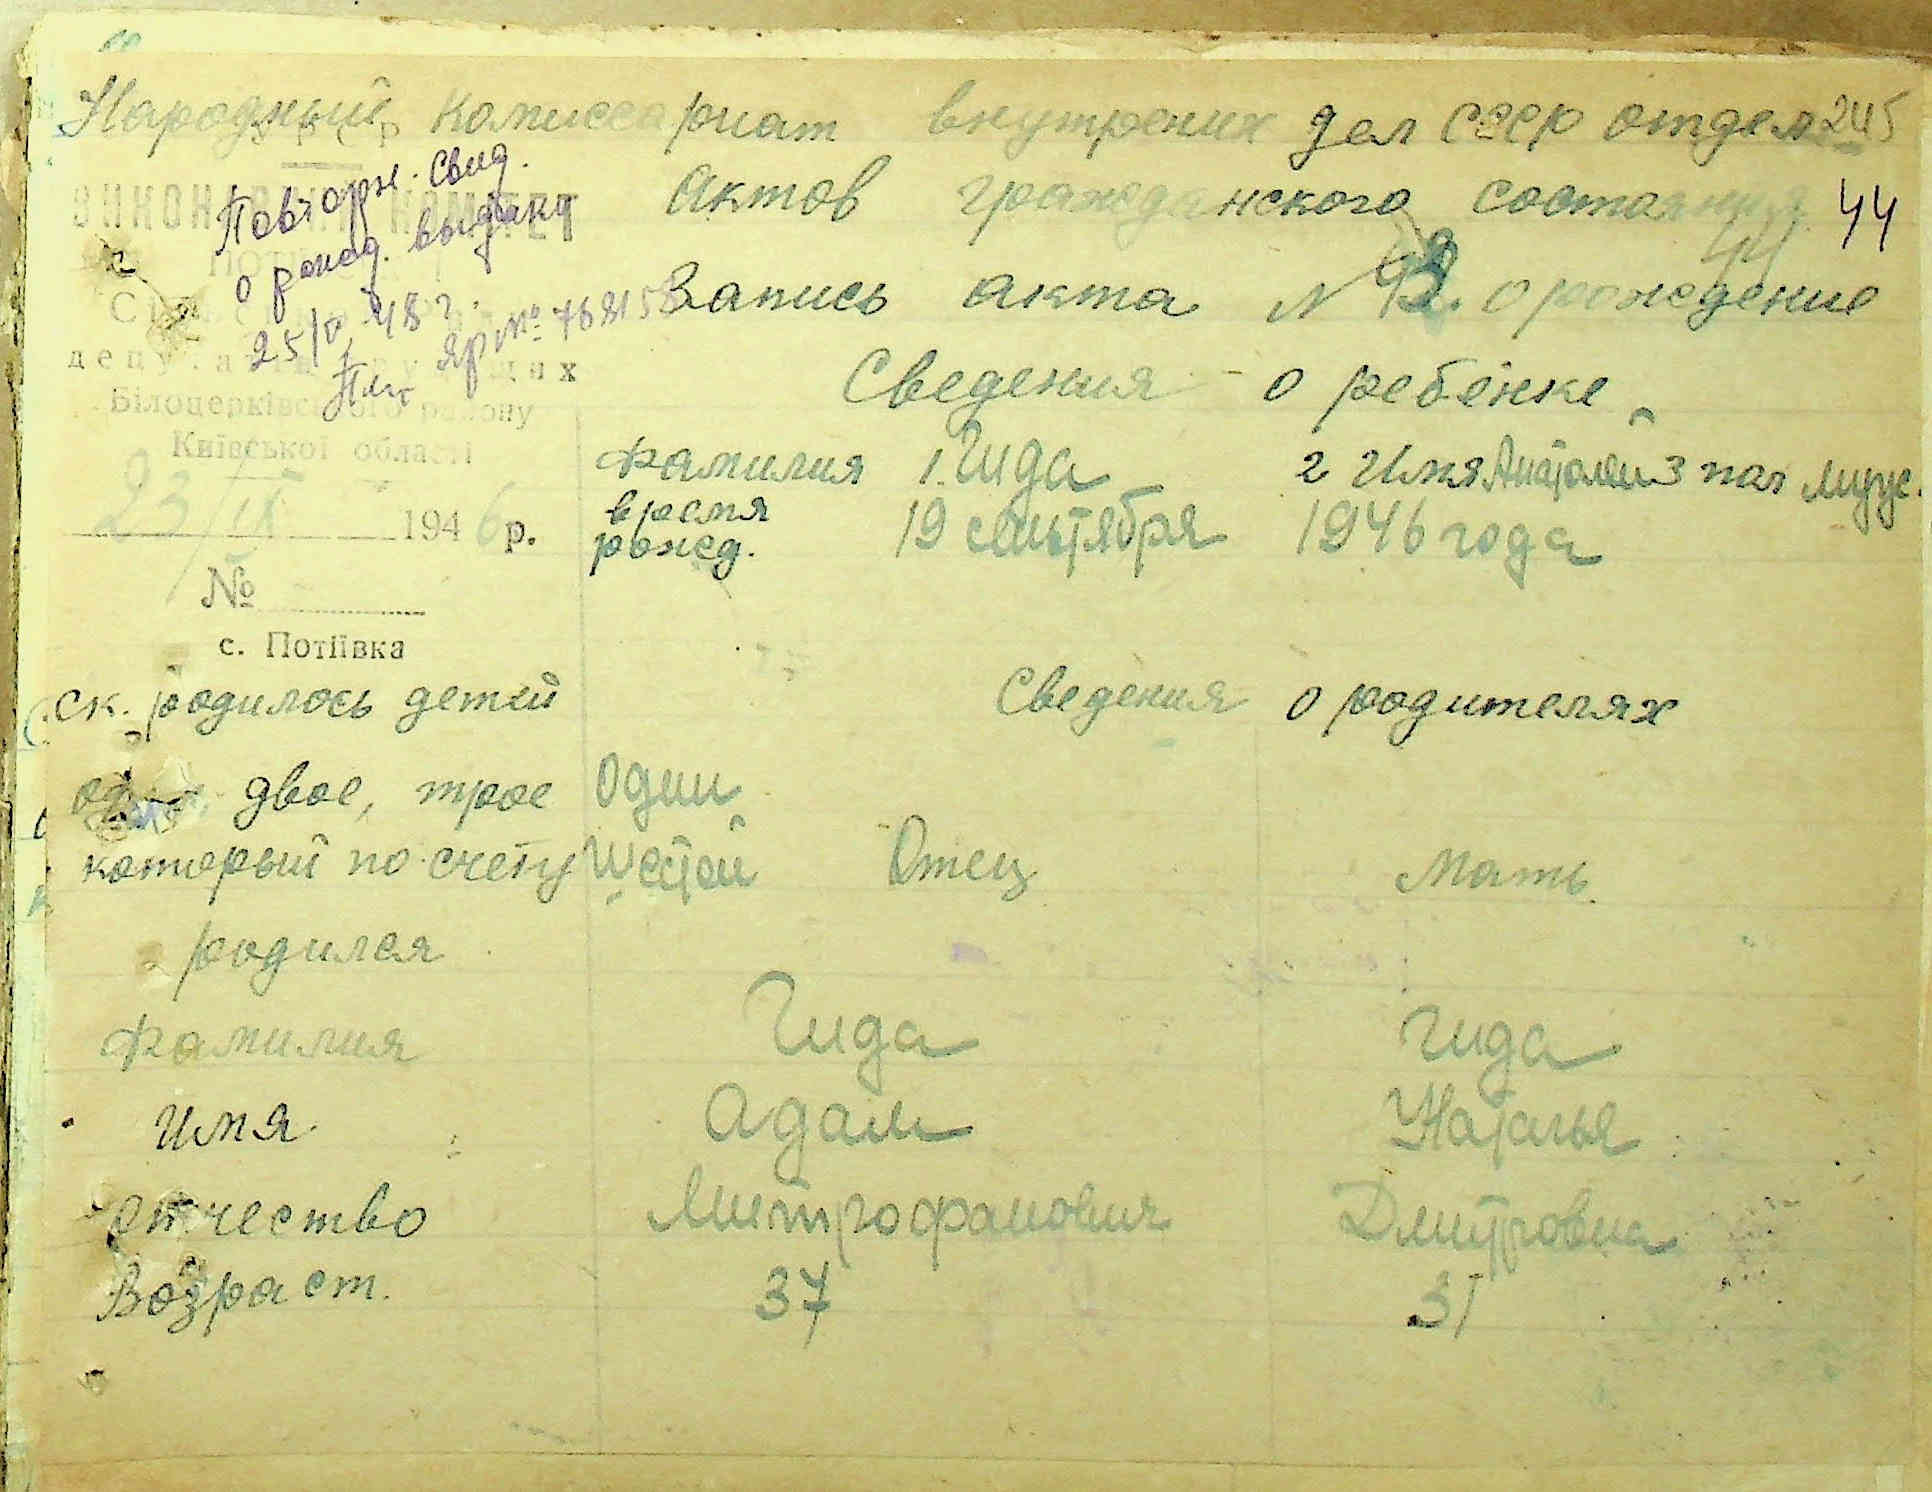 Народный Комиссариат внутрених дел СССР отдел 245
Актов гражданского состояния 44
44
УРСР
ВИКОНАВЧИЙ КОМІТЕТ
Повторн. свид.
о рожд. выдано
25/V 48 г.
ЯР № 768158
депутатів трудящих
Білоцерківського району
Київської області
23/IX 1946 р.
№
с. Потіївка
Запись акта N 42. о рождение
Сведения о ребенке
Фамилия 1. Гида 2 Имя Анатолий 3 пол мууж.
время рожд. 19 сентября 1946 года
Сведения о родителях
ск. родилось детей
один двое, трое Один
который по счету Шестой Отец Мать
родился
Фамилия Гида Гида
Имя Адам Наталья
Отчество Митрофанович Дмитровна
Возраст. 37 31